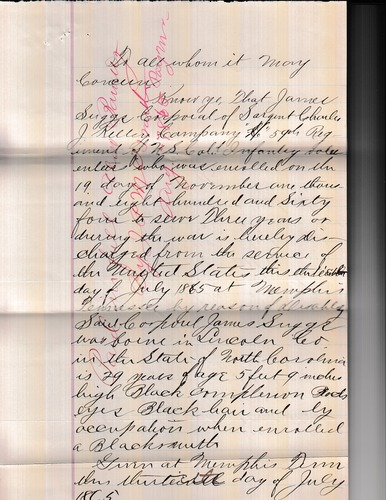 To all whom it May
Concern
Know ye, That James
Suggs Corporal of Sargent Charles
J. Company "H" 59th Reg
iment of U.S. Cold Infantry volu
enteers who was enrolled on the
19 day of November one thous
and eight hundred and Sixty
four to serve Three years or
during the war is hereby dis-
charged from the service of
the United States this thirteenth
day of July 1865 at Memphis
Tennessee by reason of disability
Said Corporal James Suggs
was borne in Lincoln Co
in the State of North Carolina
is 29 years of age 5 feet 9 inches
high Black Complexion Black
eyes Black hair and by
occupation when enrolled
a Blacksmith
Given at Memphis Tenn
this thirteenth day of July
1865